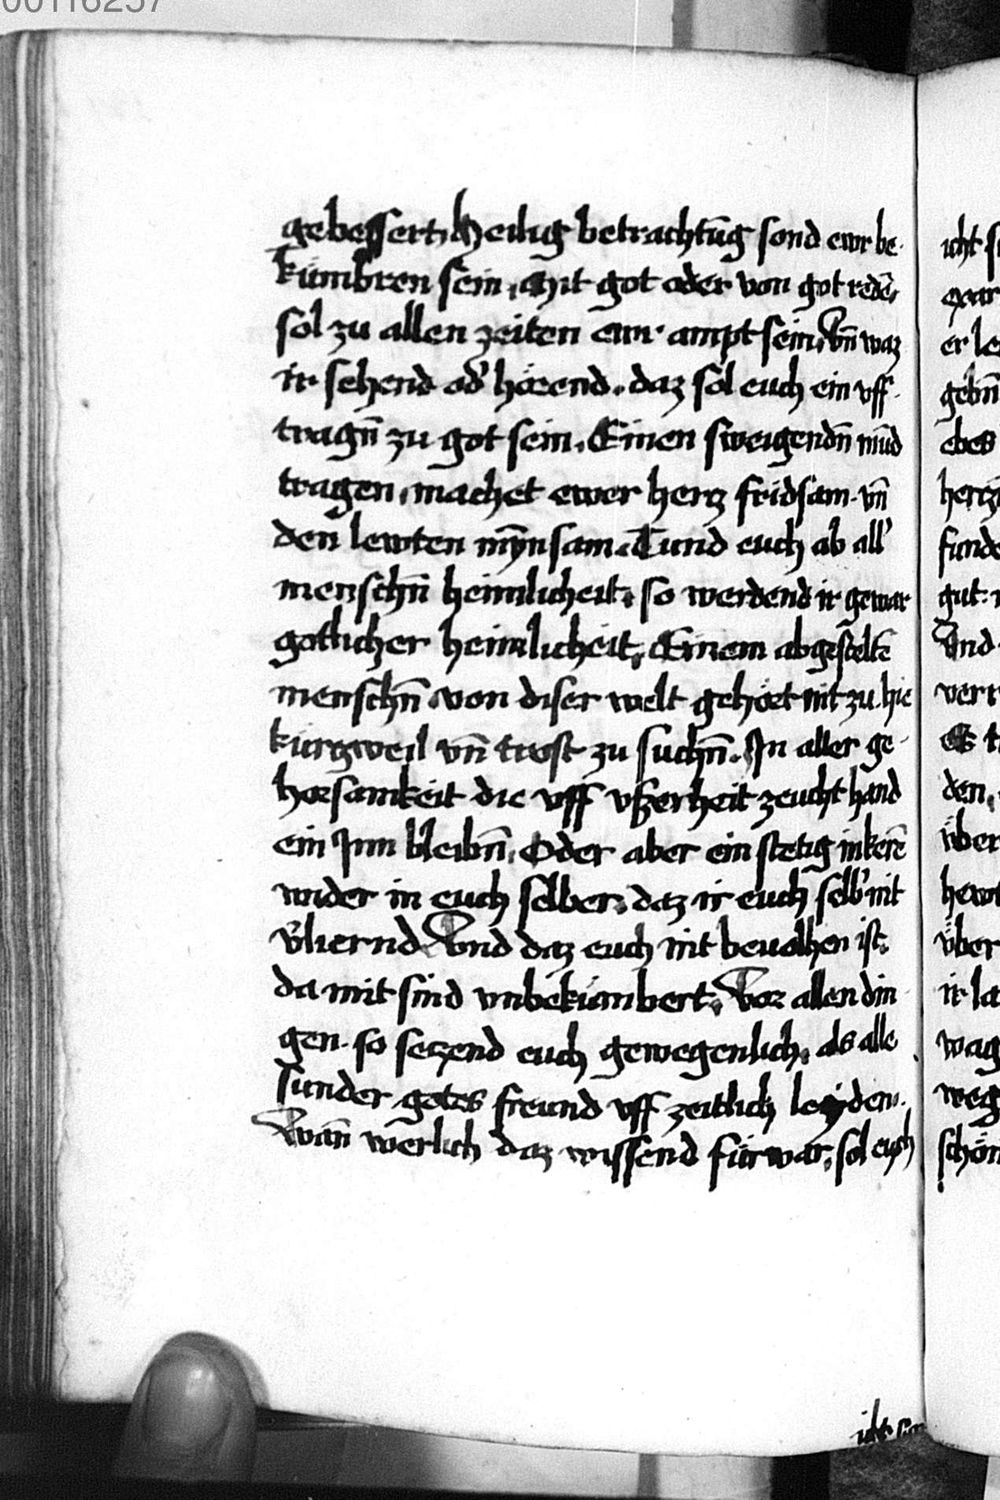 00116257
gebessert, Heilig betrachtūg sond ewr be-
kümbren sein, Mit got oder von got redē,
sol zu allen zeiten eur ampt sein, Vn̄ waz
ir sehend od' hörend. daz sol euch ein vff-
tragn̄ zu got sein, Einen sweigendn̄ mūd
tragen, machet ewer hertz fridsam. vn̄
den lewten mȳnsam. Tund euch ab all'
menschn̄ heimlicheit, so werdend ir gewar
gotlicher heimlicheit, Einem abgestelltē
menschn̄ von diser welt gehört nit zu. hie
kurtzweil vn̄ trost zu suchn̄. In aller ge-
horsamkeit die vff vßerheit zeucht hand
ein Inn bleibn̄, Oder aber ein stetig inkerē
wider in euch selber, daz ir euch selb' nit
v'liernd Vnd daz euch nit beuolhen ist,
da mit sind vnbekümbert, Vor allen din-
gen. so setzend euch gewegenlich, als alle
sunder gotes freund vff zeitlich leyden.
Wān wērlich daz wissend fürwar, sol euch
icht s
er le
gebn̄
ebes
gut
Vnd
den,
über
über
ir la
wag
weg
schön